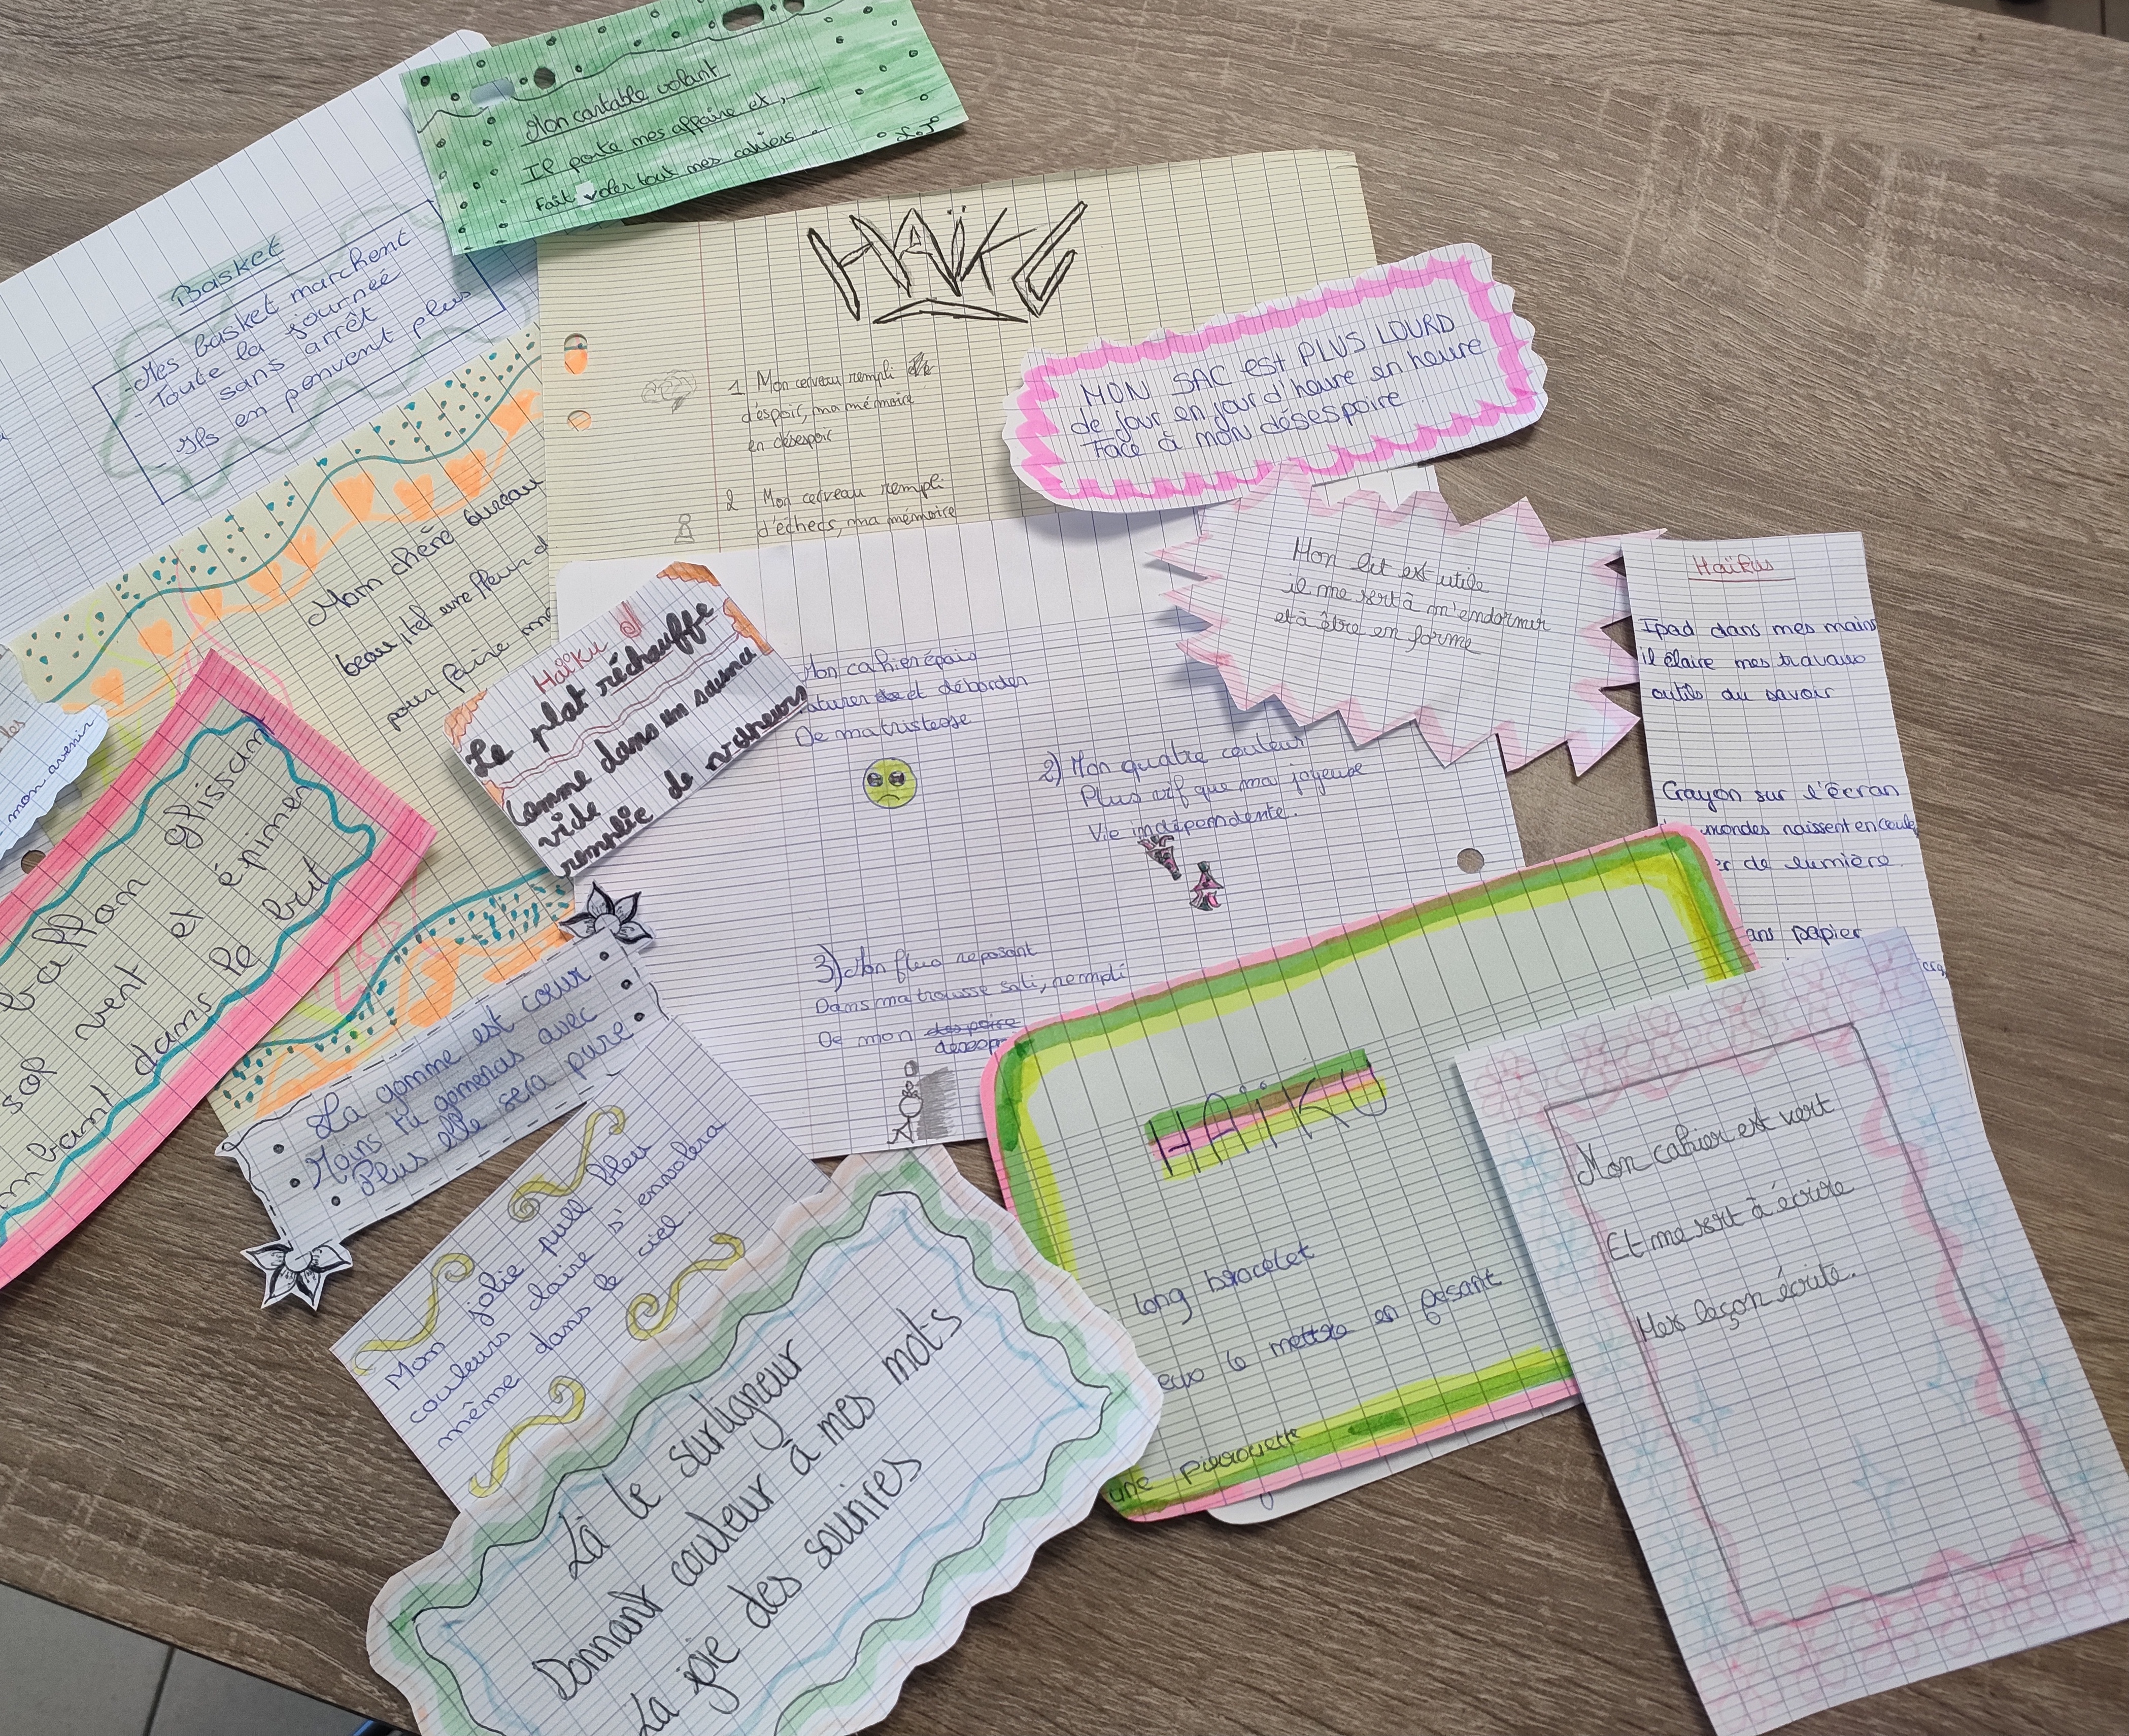 Mon cartable volant
Il porte mes affaire et,
Fait voler tout mes cahiers.
Basket
- Mes basket marchent
- Toute la journée
sans arrêt
Ils en penvent plus
HAÏKU
1 Mon cerveau rempli
d'espoir, ma mémoire
en désespoir
2 Mon cerveau rempli
d'échecs, ma mémoire
MON SAC EST PLUS LOURD
de jour en jour d'heure en heure
Face à mon désespoire
Mon lit est utile
il me sert à m'endormir
et à être en forme
Haïkus
Ipad dans mes mains
il élaire mes travaux
outils du savoir
Crayon sur l'écran
mondes naissent en coule
de lumière
ans papier
Mom chêne
beau, tel une fleur d
pour faire
Haïku
Le plat réchauffe
Comme dans un sauna
vide
remplie de
Mon cahier épais
aturer et déborder
De ma tristesse
2) Mon quatre couleur
Plus vif que ma joyeuse
Vie indépendente.
3) Mon fluo reposant
Dans ma trousse sali, rempli
De mon despoire
mon avenir
glissan
sop vent et épimer
mbant dans le brut
La gomme est cœur
Moins tu gomeras avec
Plus elle sera pure
Mon jolie pull bleu
couleurs claire s'envolera
même dans le ciel.
Là le surligneur
Donnant couleur à mes mots
La joie des sourires
HAÏKU
long bracelet
eux le mettre en faisant
une pirrouette
Mon cahier est vert
Et me sert à écrire
Mes leçon écrite.